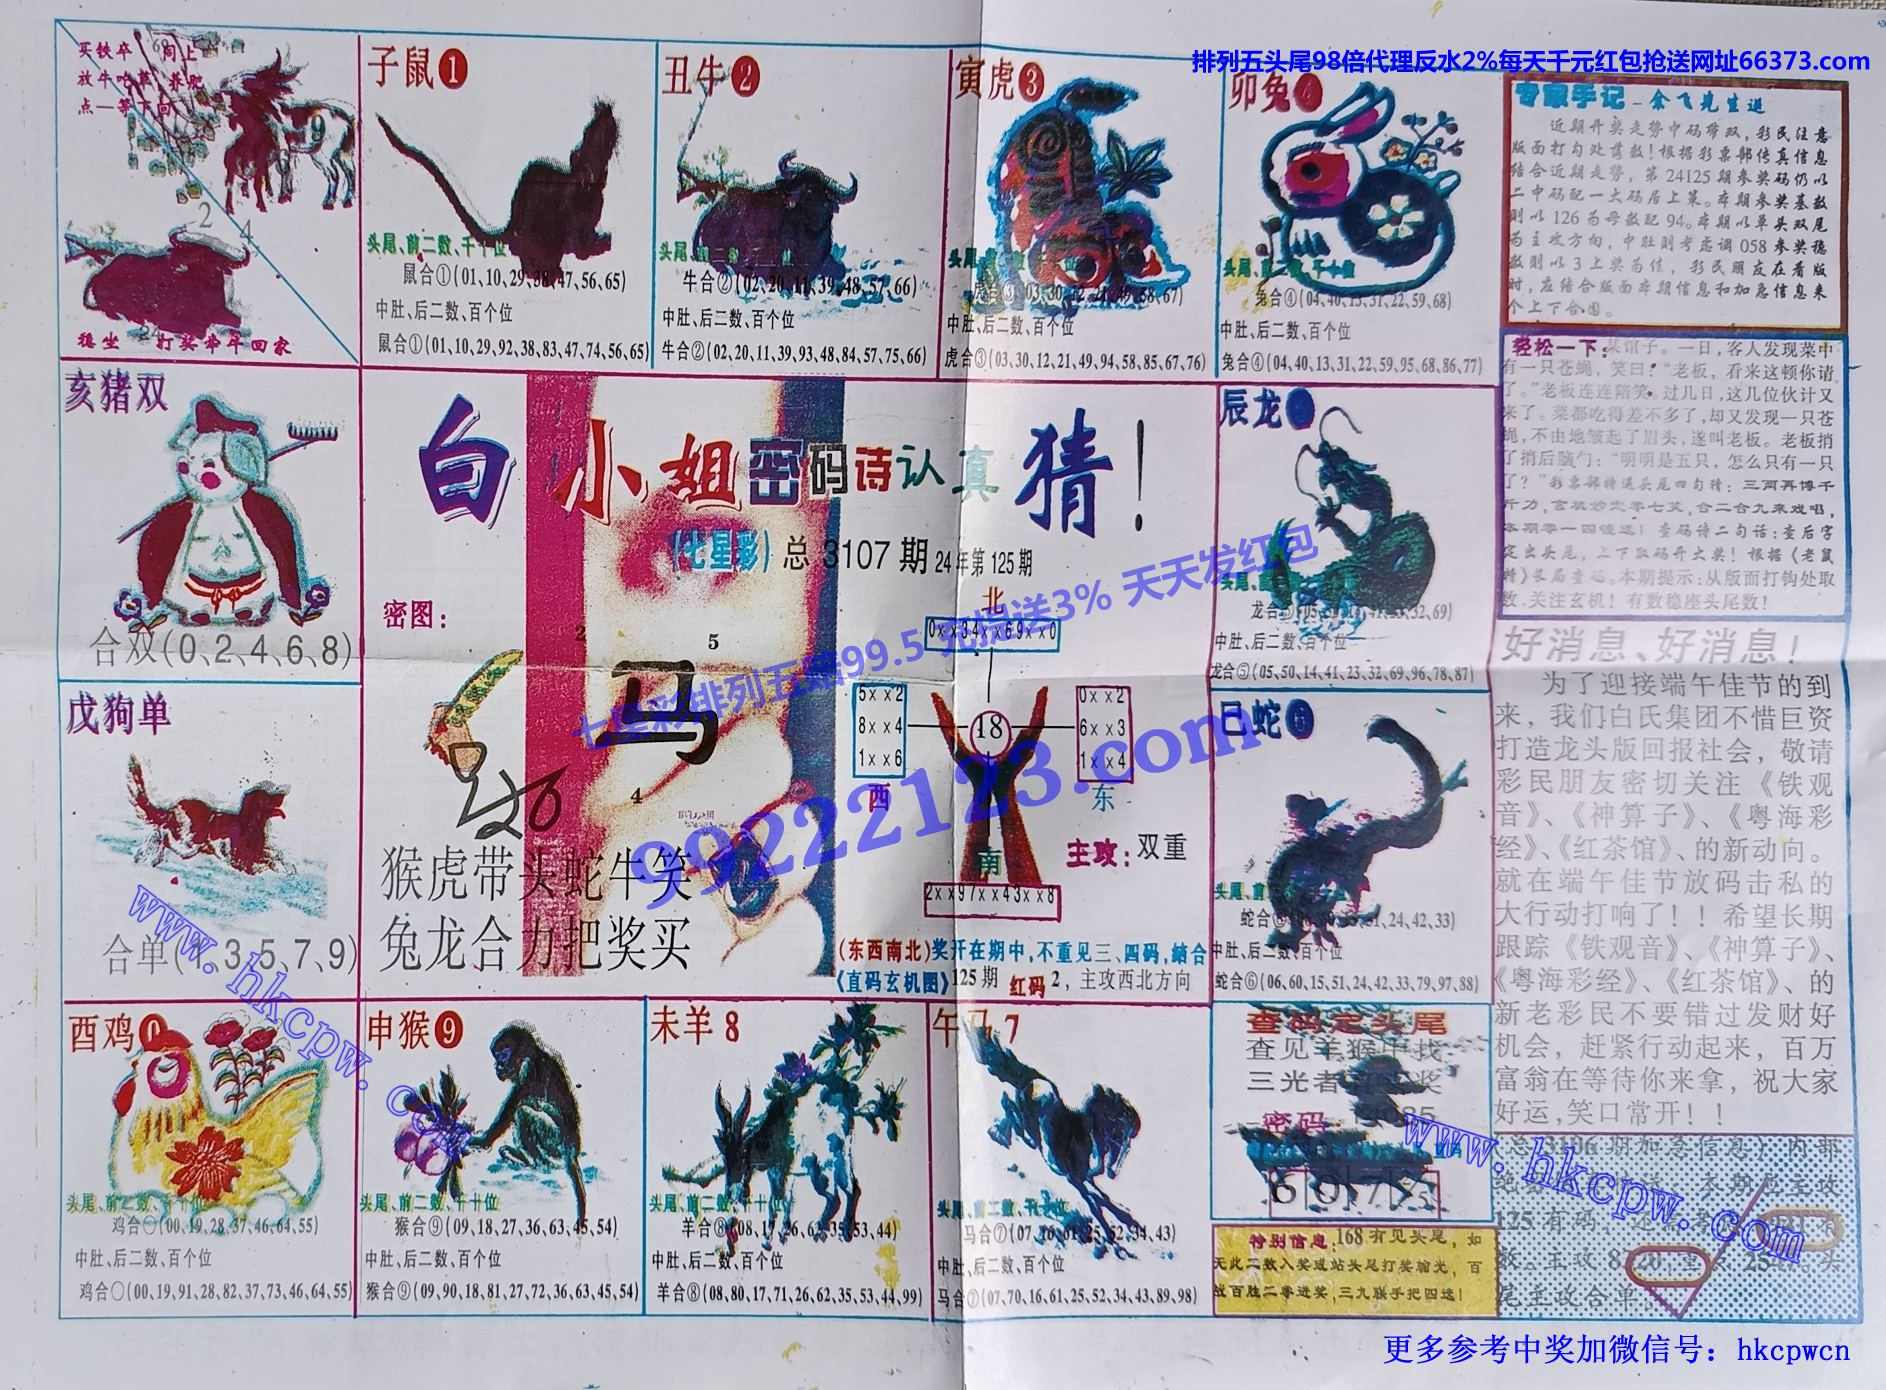 排列五头尾98倍代理反水2%每天千元红包抢送网址66373.com
买铁卒 同上
放牛吃草 养肥
点一等下回
9
2 4
稳坐 打奖牵牛回家
子鼠❶
头尾、前二数、千十位
鼠合①(01,10,29,38,47,56,65)
中肚、后二数、百个位
鼠合①(01,10,29,92,38,83,47,74,56,65)
丑牛❷
牛合②(02,20,11,39,48,57,66)
中肚、后二数、百个位
牛合②(02,20,11,39,93,48,84,57,75,66)
寅虎❸
中肚、后二数、百个位
虎合③(03,30,12,21,49,94,58,85,67,76)
卯兔❹
兔合④(04,40,13,31,22,59,68)
中肚、后二数、百个位
兔合④(04,40,13,31,22,59,95,68,86,77)
专家手记 - 余飞先生退
近期开奖走势中码带双,彩民注意
版面打勾处落数!根据彩票部传真信息
结合近期走势,第24125期参奖码仍以
二中码配一大码居上策。本期参奖基数
则以126为母数配94。本期以单头双尾
为主攻方向,中肚则考虑调058参奖稳
数则以3上奖为佳,彩民朋友在看版
时,应结合版面本期信息和加急信息来
个上下合围。
轻松一下:某馆子。一日,客人发现菜中
有一只苍蝇,笑曰:“老板,看来这顿你请
了。”老板连连陪笑。过几日,这几位伙计又
来了。菜都吃得差不多了,却又发现一只苍
蝇,不由地皱起了眉头,遂叫老板。老板捎
了捎后脑勺:“明明是五只,怎么只有一只
了?”彩票部特送头尾四句特:三两再博千
斤力,玄机妙定零七笑,合二合九来戏唱,
本期零一四镜送!查码诗二句话:查后字
定出头尾,上下取码开大奖!根据《老鼠
精》长局查码。本期提示:从版面打钩处取
数.关注玄机!有数稳座头尾数!
亥猪双
合双(0、2、4、6、8)
戊狗单
合单(1、3、5、7、9)
白小姐密码诗认真猜!
(七星彩) 总 3107 期 24年第125期
密图:
2
5
马
4
猴虎带头蛇牛笑
兔龙合力把奖买
北
0xx34xx69xx0
5xx2
8xx4
1xx6
18
0xx2
6xx3
1xx4
西
东
南
2xx97xx43xx8
主攻:双重
(东西南北)奖开在期中,不重见三、四码,结合
《直码玄机图》125期 红码2,主攻西北方向
辰龙
中肚、后二数、百个位
龙合⑤(05,50,14,41,23,32,69,96,78,87)
巳蛇❻
中肚、后二数、百个位
蛇合⑥(06,60,15,51,24,42,33,79,97,88)
好消息、好消息!
为了迎接端午佳节的到
来,我们白氏集团不惜巨资
打造龙头版回报社会,敬请
彩民朋友密切关注《铁观
音》、《神算子》、《粤海彩
经》、《红茶馆》、的新动向。
就在端午佳节放码击私的
大行动打响了!!希望长期
跟踪《铁观音》、《神算子》、
《粤海彩经》、《红茶馆》、的
新老彩民不要错过发财好
机会,赶紧行动起来,百万
富翁在等待你来拿,祝大家
好运,笑口常开!!
酉鸡
头尾、前二数、千十位
鸡合○(00,19,28,37,46,64,55)
中肚、后二数、百个位
鸡合○(00,19,91,28,82,37,73,46,64,55)
申猴❾
头尾、前二数、千十位
猴合⑨(09,18,27,36,63,45,54)
中肚、后二数、百个位
猴合⑨(09,90,18,81,27,72,36,63,45,54)
未羊8
头尾、前二数、千十位
羊合⑧(08,17,26,62,35,53,44)
中肚、后二数、百个位
羊合⑧(08,80,17,71,26,62,35,53,44,99)
午马7
马合⑦(07,16,61,25,52,34,43)
中肚、后二数、百个位
马合⑦(07,70,16,61,25,52,34,43,89,98)
查码定头尾
查见羊猴中找
密码
特别信息:168有见头尾,如
无此二数入奖或站头尾打奖输光,百
战百胜二零进奖,三九联手把四选!
(总3106期加急信息)内部
尾主攻合单
七星彩排列五赔99.5 充值送3% 天天发红包
99222123.com
www.hkcpw.com
www.hkcpw.com
更多参考中奖加微信号:hkcpwcn